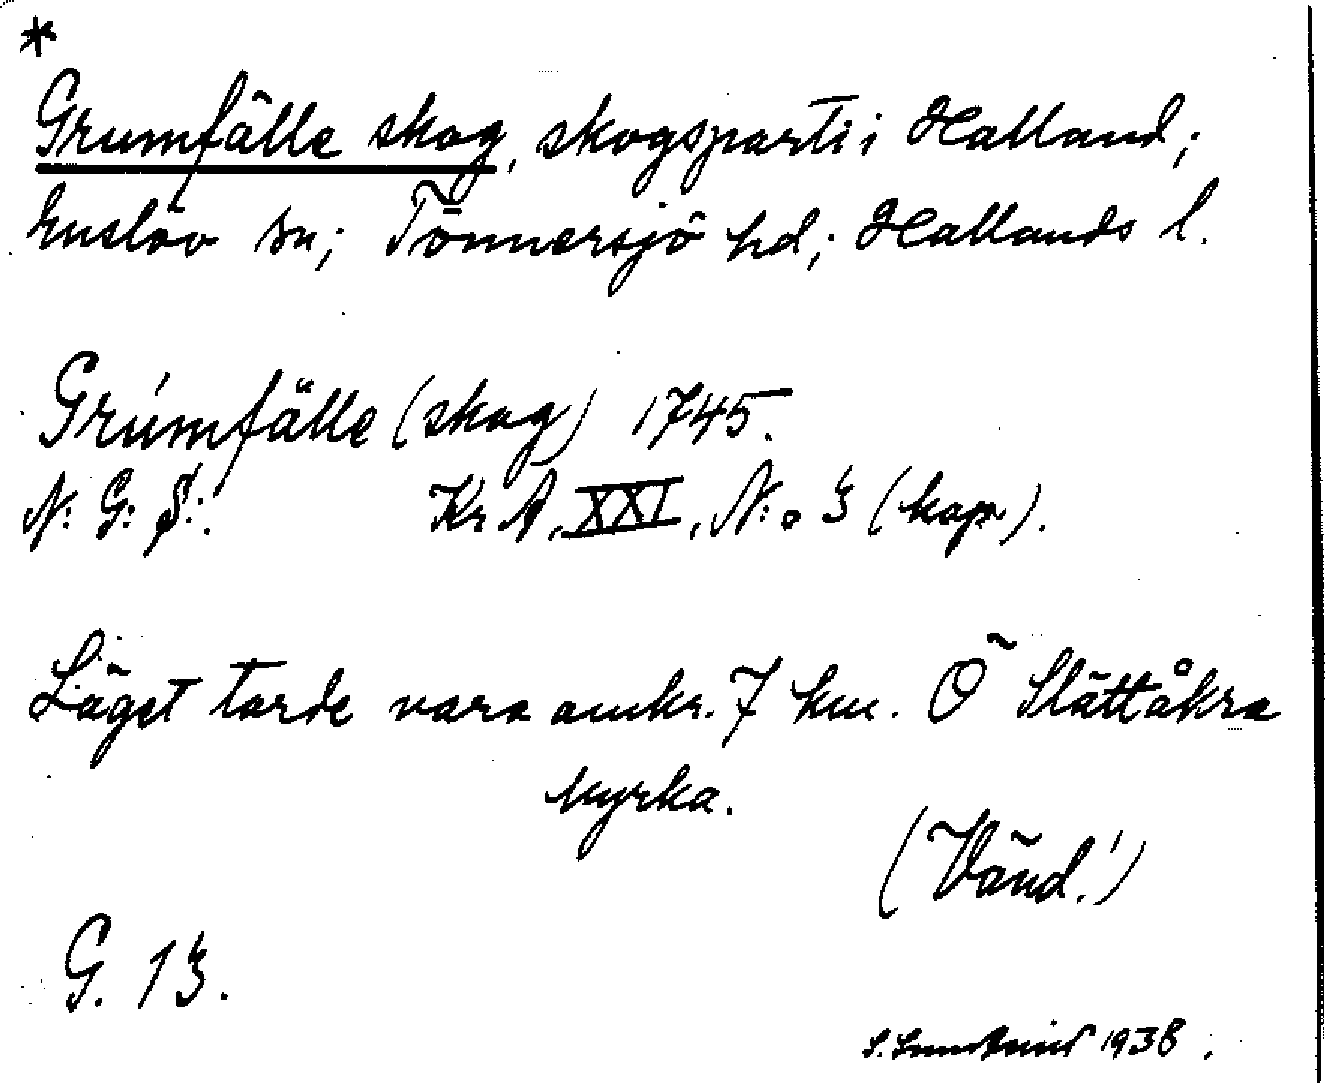 *
Grumfälle skog, skogsparti i Halland;
Enslöv sn; Tönnersjö hd; Hallands l.
Grumfälle (skog) 1745.
N: G: S:. Kr A, XXI, N:o 3 (kop.).
Läget torde vara omkr. 7 km. Ö Slättåkra
kyrka.
(Vänd!)
G. 13.
1938.